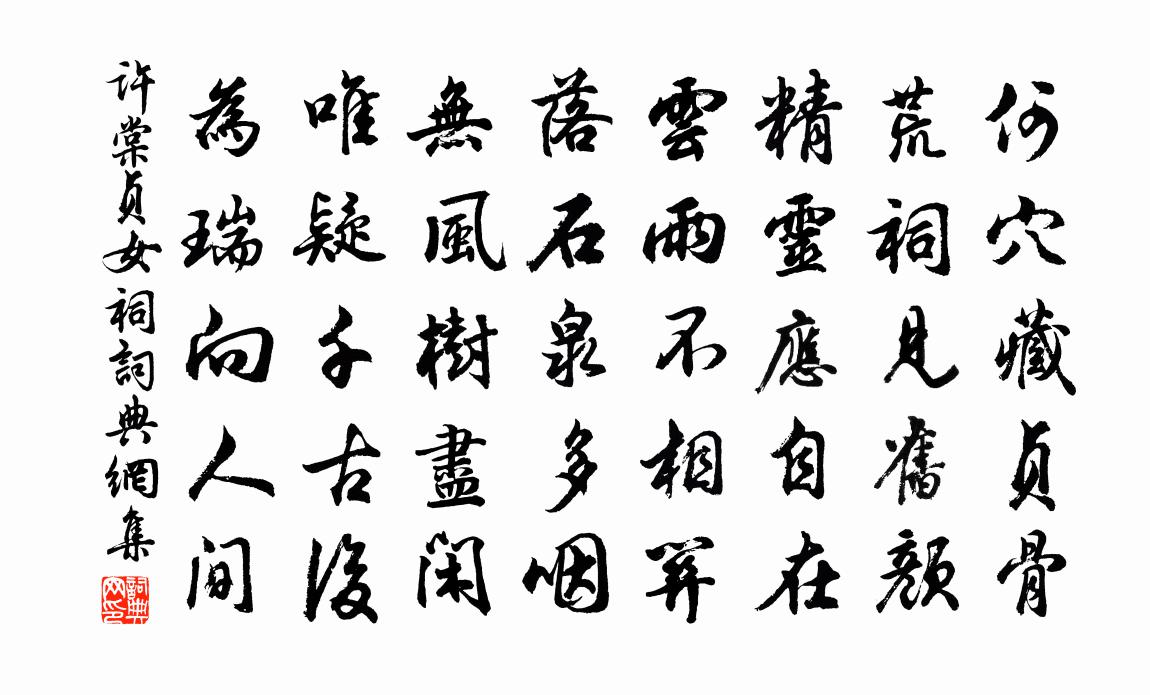 何穴藏貞骨
荒祠見舊顏
精靈應自在
雲雨不相關
落石泉多咽
無風樹盡閑
唯疑千古後
為瑞向人間
許棠貞女祠詞典網集
詞典网印